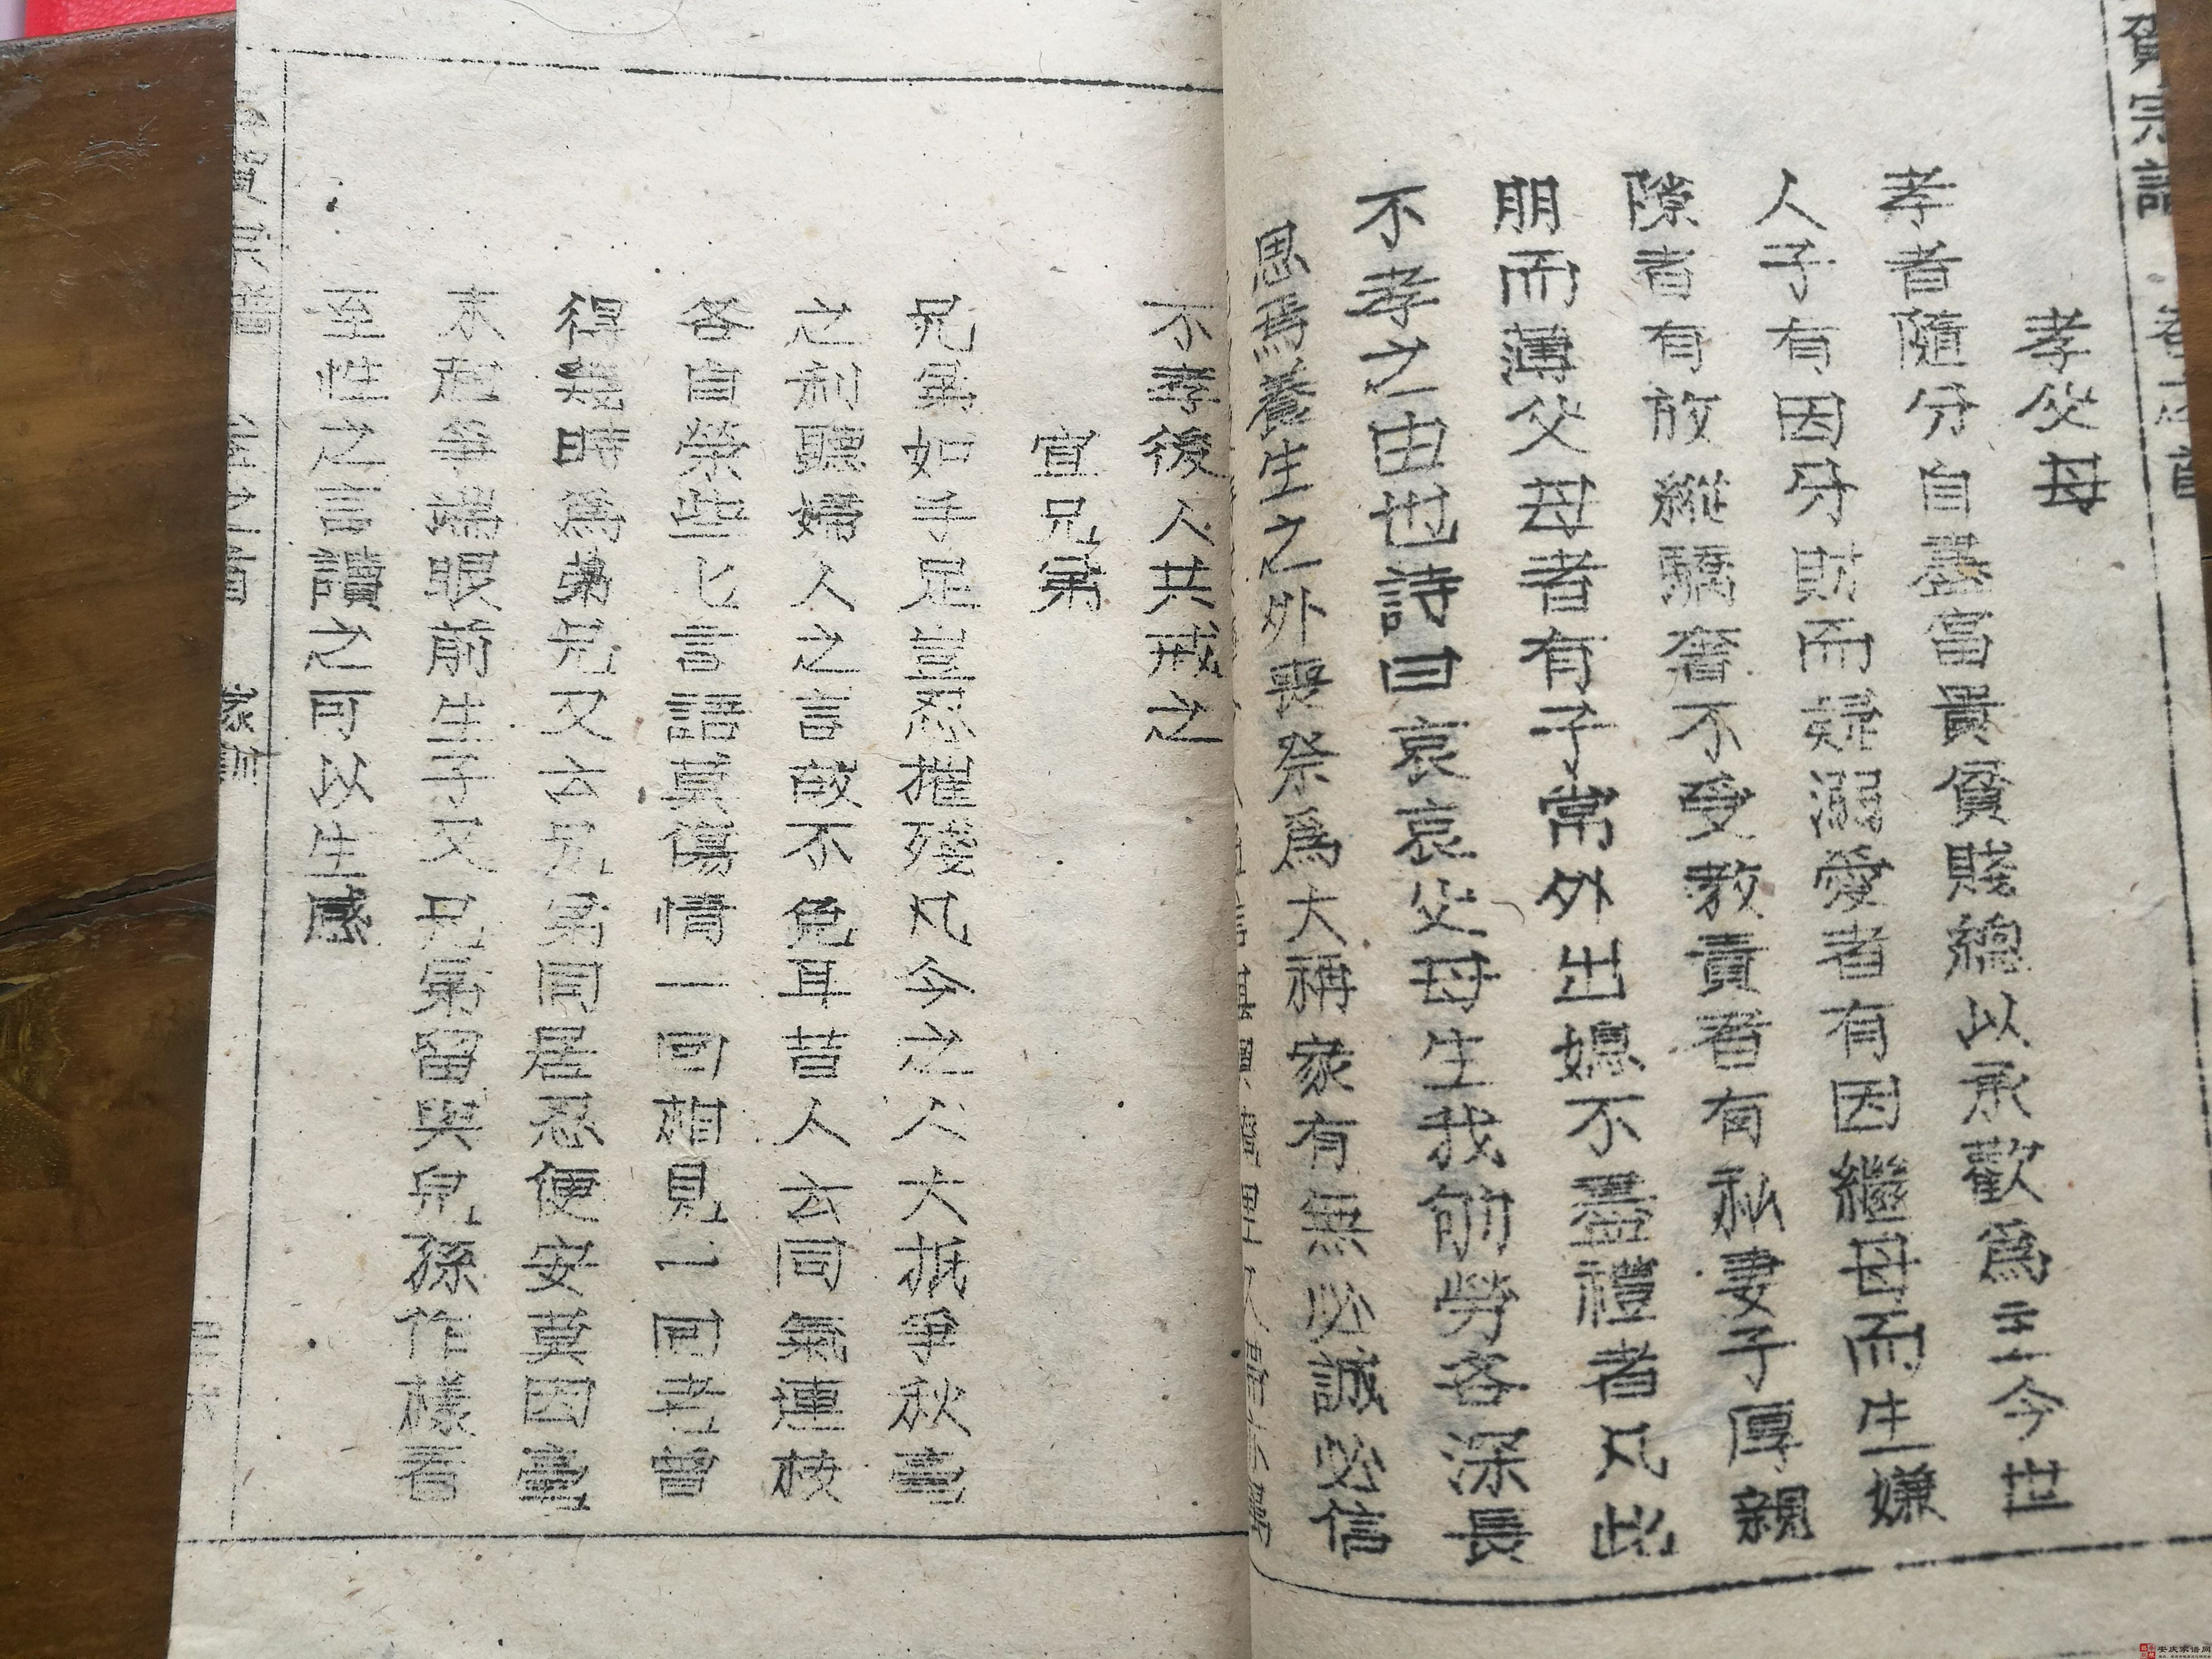 賀宗譜 卷之首
孝父母
孝者隨分自盡富貴貧賤總以承歡爲主今世
人子有因分財而疑溺愛者有因繼母而生嫌
隙者有放縱驕奢不受教責者有私妻子厚親
朋而薄父母者有子常外出媳不盡禮者凡此
不孝之由也詩曰哀哀父母生我劬勞各深長
思焉養生之外喪祭爲大稱家有無必誠必信
不孝後人共戒之
宜兄弟
兄弟如手足豈忍摧殘凡今之人大抵爭秋毫
之利聽婦人之言故不免耳昔人云同氣連枝
各自榮些匕言語莫傷情一回相見一回老曾
得幾時爲弟兄又云兄弟同居忍便安莫因毫
末起爭端眼前生子又兄弟留與兒孫作樣看
至性之言讀之可以生感
賀宗譜 卷之首 家訓
安庆家谱网